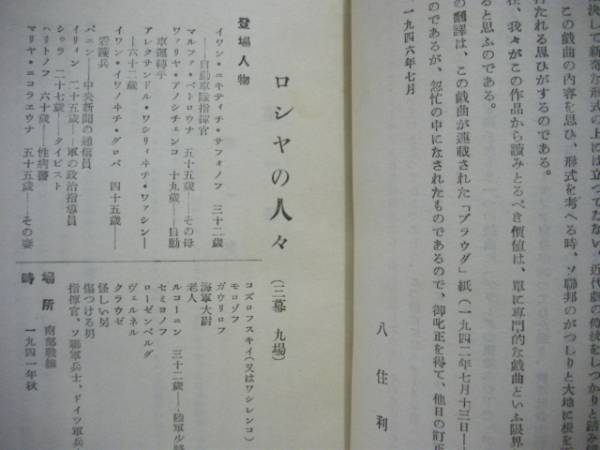 決して新奇な形式の上には立つてゐない、近代劇の傳統をしつかりと踏
この戯曲の内容を思ひ、形式を考へる時、ソ聯邦のがつしりと大地に根を下
打たれる思ひがするのである。
在、我々がこの作品から讀みとるべき價値は、單に專門的な戯曲といふ限界
ると思ふのである。
の翻譯は、この戯曲が連載された「プラウダ」紙(一九四二年七月十三日—
のであるが、怱忙の中になされたものであるので、御叱正を得て、他日の訂正
一九四六年七月
八住利
ロシヤの人々
(三幕 九場)
登場人物
イワン・ニキティチ・サフォノフ 三十二歳
——自動車隊指揮官
マルファ・ペトロウナ 五十五歳——その母
ワァリヤ・アノシチェンコ 十九歳——自動
車運轉手
アレクサンドル・ワシリィヰチ・ワァシン—
—六十二歳
イワン・イワノヰチ・グロバ 四十五歳——
看護兵
パニン——中央新聞の通信員
イリィン 二十五歳——軍の政治指導員
シュラ 二十七歳——タイピスト
ハリトノフ 六十歳——性病醫
マリヤ・ニコラエウナ 五十五歳——その妻
コズロフスキイ(又はワシレンコ)
モロゾフ
ガウリロフ
海軍大尉
老人
ルコーニン 三十二歳——陸軍少將
セミョノフ
ローゼンベルグ
ヴェルネル
クラウゼ
怪しい男
傷つける男
指揮官、ソ聯軍兵士、ドイツ軍兵
場所 南部戰線
時 一九四一年秋